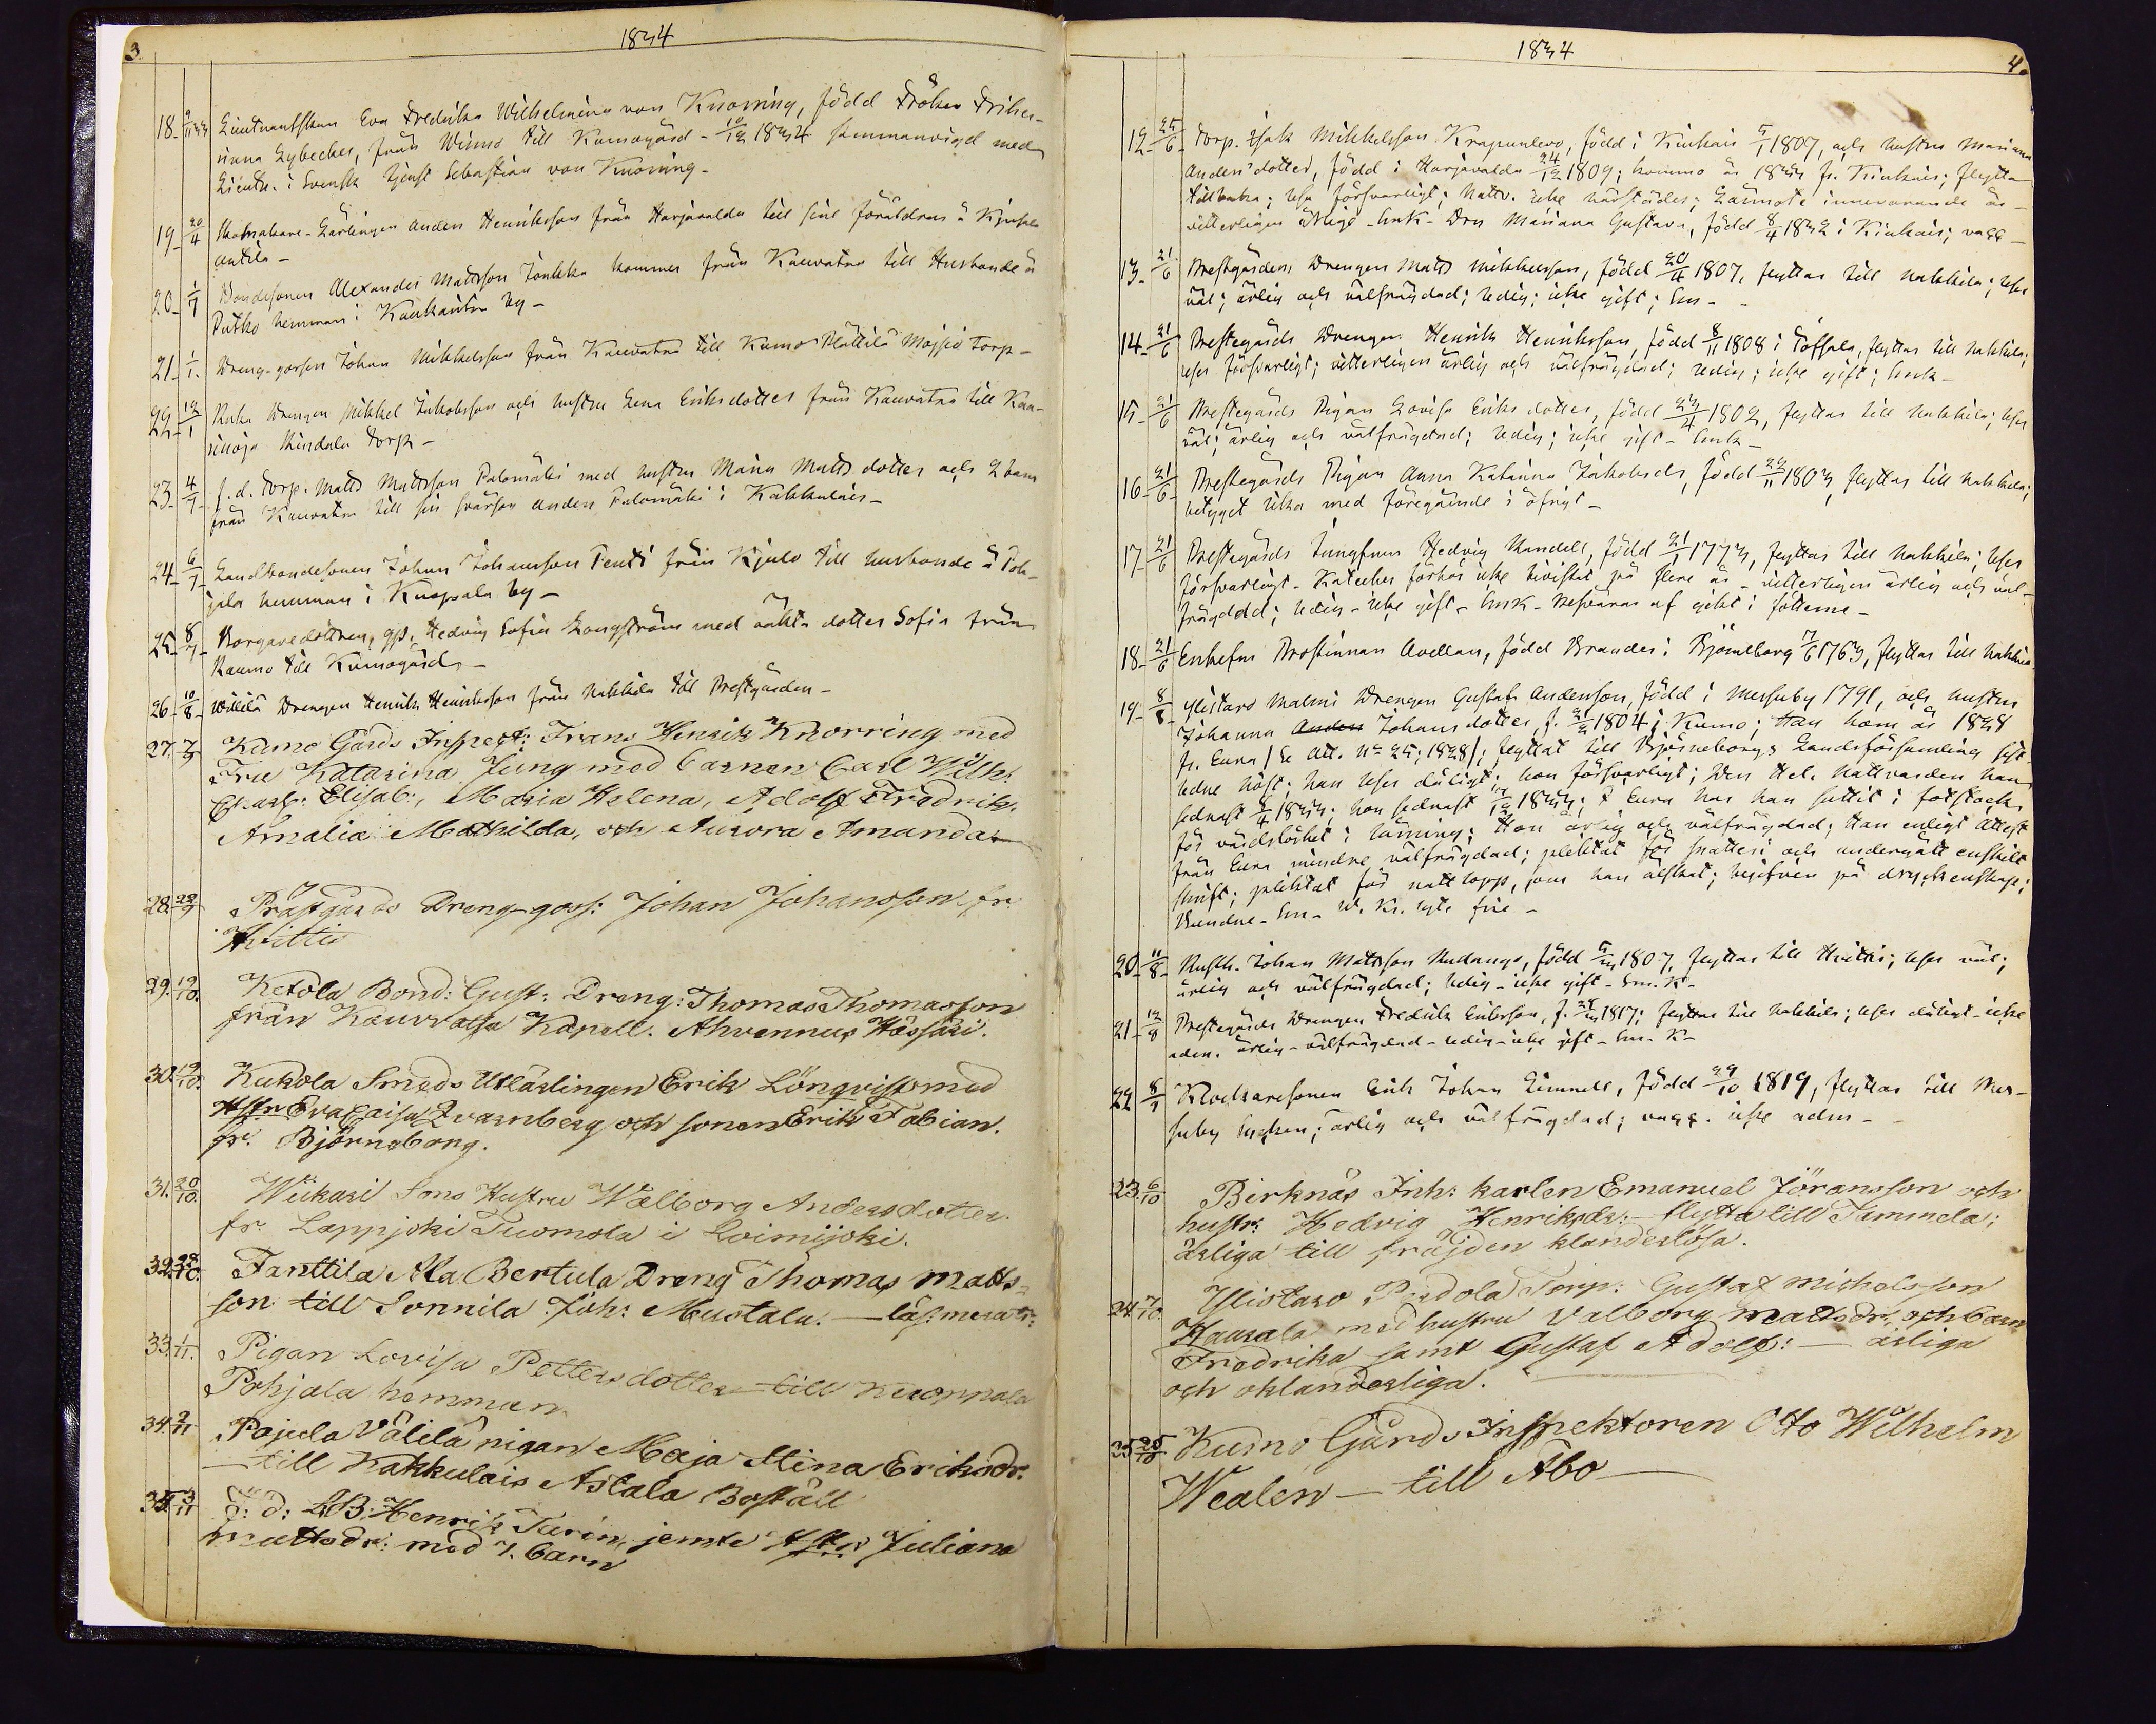 3.
1834
18. 9/11 33 Lieutnantskan Eva Fredrika Wilhelmina von Knorring, född Fröken Friher-
inna Lybecker, från Wirmo till Kumogård - 10/12 1834 sammanvigd med
Lieutn. i Svensk tjenst Sebastian von Knorring -
19. 20/4 Skomakare-Lärlingen Anders Henriksson från Harjavalda till sine föräldrar å
Antila -
20. 1/1 Bondesonen Alexander Mattsson Jonkka kommer från Kauvatsa till Husbonde å
Putko hemman i Kankantza by -
21. 1/1. Dreng-gossen Johan Mikkelsson från Kauvatsa till Kumo Plättilä Torp -
22. 12/1 Kuka Drengen Mikkel Jakobsson och hustru Lena Eriksdotter från Kauvatsa till
Torp -
23. 4/1 f.d. Torp. Matts Mattsson Palomäki med hustru Maria Matts dotter och 2 barn
från Kauvatsa till sin svärson Anders Palomäki i Kakkulais -
24. 6/7 Landbondesonen Johan Johansson Pentti från Kjulo till husbonde å Poh-
jala hemman i Kuopala by -
25. 8/7 Borgaredottren, Hedvig Sofia Longström med oäkta dotter Sofia från
Raumo till Kumogård -
26. 10/8 Villilä Drengen Henrik Henriksson från Nakkila till Prestgården -
27. 7/9 Kumo Gårds Inspect: Frans Henrik Knorring med
Fru Katarina Jung med barnen Carl Wilh:
Charl: Elisab:, Maria Helena, Adolf Fredrik,
Amalia Mathilda, och Aurora Amanda
28. 22/9 Prästgårds Dreng-goss: Johan Johansson fr.
Hvittis
29. 19/10. Ketola Bond: Gust: Dreng: Thomas Thomasson
från Kauvatsa Kapell. Ahvennus Hossari.
30. 19/10. Kukola Smeds Utlärlingen Erik Lönqvist med
Hstn Eva Caisa Qvarnberg och sonen Erik Fabian.
fr. Björneborg.
31. 20/10. Wiikari Sons Hustru Walborg Andersdotter
fr. Lappjoki Tuomola i Loimijoki.
32. 28/10. Fanttila Ala Bertula Dreng Thomas Matts-
son till Sonnila Joh: Mustalu.
33. 1/11. Pigan Lovisa Pettersdotter till Kuoppala
Pohjala hemman
34. 2/11 Pajula Välilä pigan Maja Stina Eriksdr.
— till Kakkulais Astala Boställ
35. 3/11 f: d: LB. Henrik Turin, jemte Hstr: Juliana
Mattsdr: med 1. barn
1834
4.
12. 25/6 Torp. Isak Mikkelsson Krapunlevo, född i Kiukais 5/1 1807, och hustru Mariana
Anders dotter, född i Harjavalda 24/12 1809; kommo år 1833 fr. Kiukais; flytta
tillbaka; läsa försvarligt;
Mariana Gustava, född 8/4 1832 i Kiukais; vacc -
13. 21/6 Prestgårdens Drengen Matts Mikkelsson, född 20/4 1807, flyttar till Nakkila; läser
väl; ärlig och välfrägdad; ledig; icke gift; -
14. 21/6 Prestegårds Drengen Henrik Henriksson, född 8/11 1808 i Töffsala, flyttar till Nakkila;
läser försvarligt; vitterligen ärlig och välfrägdad; ledig; icke gift; -
15. 21/6 Prestegårds Pigan Lovisa Eriks dotter, född 23/4 1802, flyttar till Nakkila; läser
väl; ärlig och välfrägdad; ledig; icke gift -
16. 21/6 Prestegårds Pigan Anna Katarina Jakobsdr, född 22/11 1803, flyttar till Nakkila;
betyget lika med föregående i öfrigt -
17. 21/6 Prestegårds Jungfrun Hedvig Mandell, född 21/1 1773, flyttar till Nakkila; läser
försvarligt - Kateches förhör icke bivistat på flere år - vitterligen ärlig och väl-
frägdad; ledig - icke gift - besväras af gikt i fötterne -
18. 21/6 Enkefru Prostinnan Avellan, född Brander i Björneborg 17/6 1763, flyttar till Nakkila.
19. 8/8 Ylistaro Malmi Drengen Gustaf Andersson, född i Messuby 1791, och hustru
Johanna Anders Johans dotter, f. 21/2 1804 i Kumo; Han kom år 1828
fr. Eura (Se Att. No 25; 1828), flyttat till Björneborgs Landsförsamling sist-
ledne höst; han läser dåligt; hon försvarligt; Den Hel. Nattvarden han
sednast 8/4 1833; hon sednast 1833; I Eura har han suttit i fotstock
för vårdslöshet i läsning; Hon ärlig och välfrägdad; Han enligt Attest
från Eura mindre välfrägdad; pliktat för snatteri och undergått enskilt
skrift; pliktat för nattlopp, som han älskat; begifven på dryckenskap;
20. 11/8 Rusth. Johan Mattsson, född 5/3 1807, flyttar till Hvittis; läser väl;
ärlig och välfrägdad; ledig - icke gift -
21. 12/8 Prestegårds Drengen Fredrik Eriksson, f. 1817; flyttar till Nakkila; läser dåligt - icke
adm. ärlig - välfrägdad - ledig - icke gift -
22. 8/1 Klockaresonen Erik Johan Limnell, född 29/10 1819, flyttar till Mes-
suby Socken; ärlig och välfrägdad; vacc. icke adm -
23. 6/10 Birknäs Inh: karlen Emanuel Jöransson och
hustr. Hedvig Henriksdr: flytta till Tammela;
ärliga till fräjden klanderlösa.
24. 7/10. Ylistaro Perdola Torp: Gustaf Michelsson
Hausala med hustru Valborg Mattsdr, och barn
Fredrika samt Gustaf Adolf: — ärliga
och oklanderliga.
35 25/10 Kumo Gårds Inspektoren Otto Wilhelm
Wealen — till Åbo